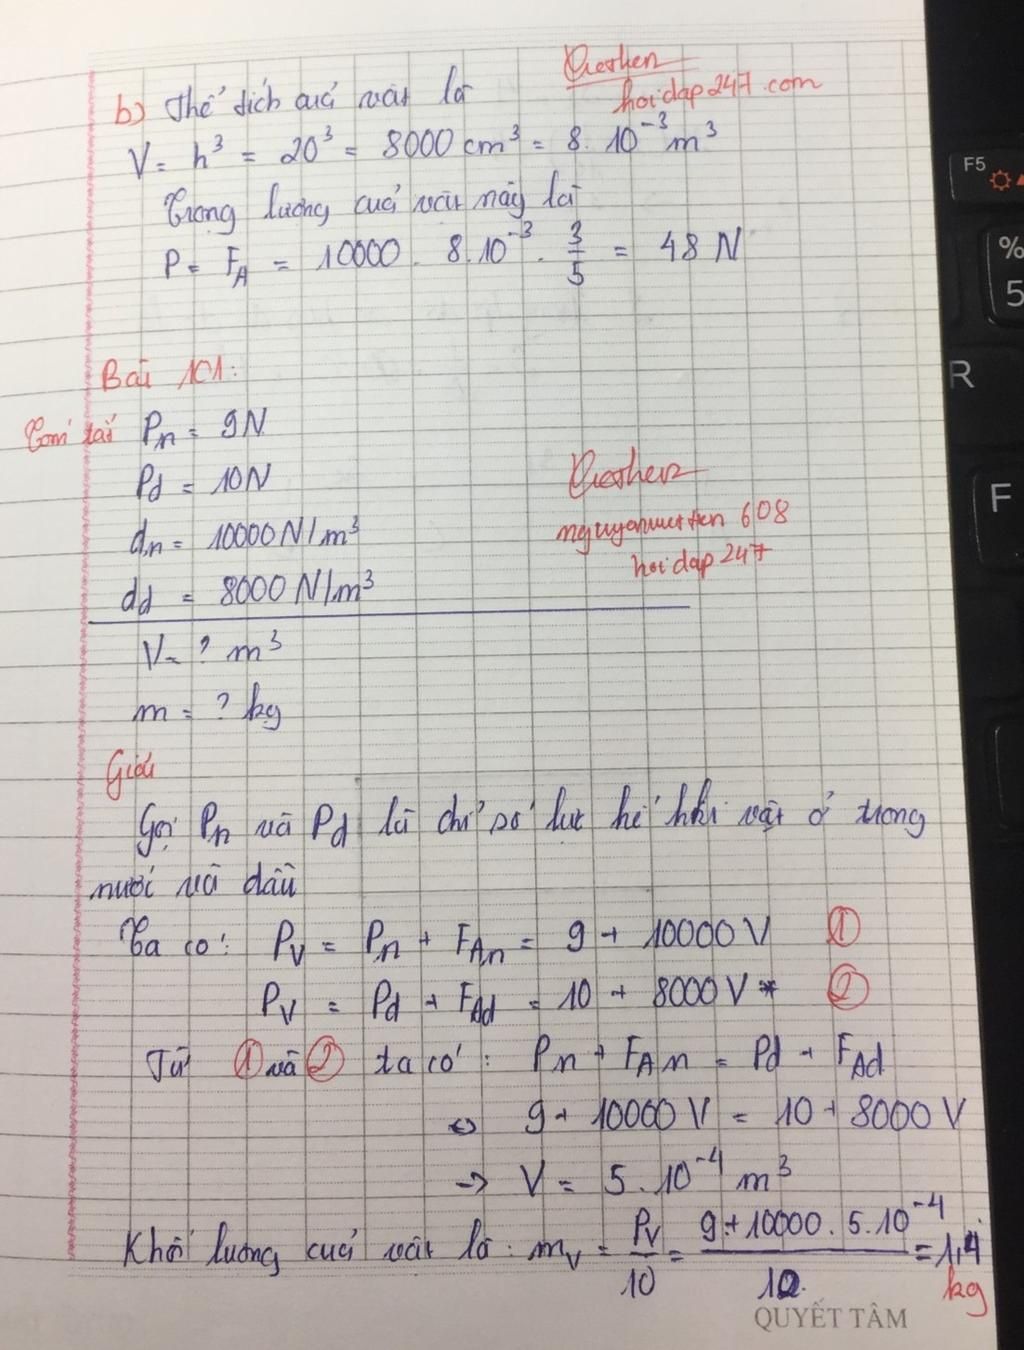 b) Thể tích của vật là
hoidap247.com
V = h³ = 20³ = 8000 cm³ = 8.10⁻³ m³
Trọng lượng của vật này là
P = F_A = 10000 . 8.10⁻³ . 3/5 = 48 N
Bài 101:
Tóm tắt P_n = 9N
P_d = 10N
d_n = 10000 N/m³
608
hoidap247
d_d = 8000 N/m³
V = ? m³
m = ? kg
Giải
Gọi P_n và P_d là chỉ số lực kế khi vật ở trong
nước và dầu
Ta có: P_V = P_n + F_An = 9 + 10000 V ①
P_V = P_d + F_Ad = 10 + 8000 V ②
Từ ① và ② ta có: P_n + F_An = P_d + F_Ad
⇔ 9 + 10000 V = 10 + 8000 V
→ V = 5.10⁻⁴ m³
Khối lượng của vật là: m_V = P_V/10 = (9 + 10000 . 5.10⁻⁴)/10 = 1,4 kg
QUYẾT TÂM
F5
%
5
R
F